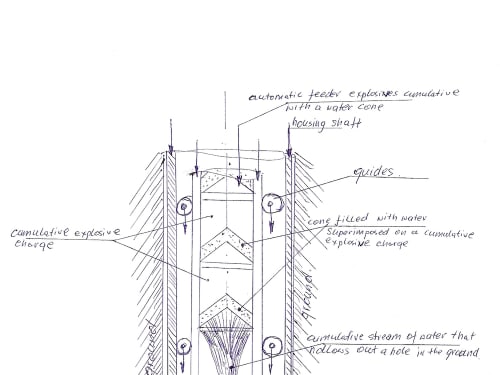 automatic feeder explosives cumulative
with a water cone
housing shaft
guides.
cone filled with water
superimposed on a cumulative
explosive charge
cumulative explosive
charge
ground
ground
cumulative stream of water that
hollows out a hole in the ground